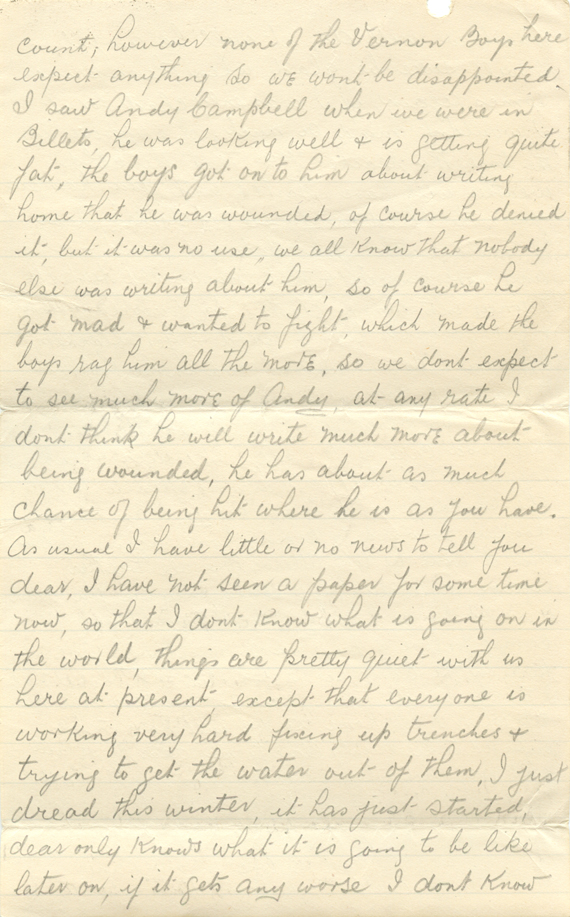 count, however none of the Vernon Boys here
expect anything so we wont be disappointed.
I saw Andy Campbell when we were in
Billets, he was looking well & is getting quite
fat, the boys got on to him about writing
home that he was wounded, of course he denied
it, but it was no use, we all know that nobody
else was writing about him, so of course he
got mad & wanted to fight, which made the
boys rag him all the more, so we dont expect
to see much more of Andy, at any rate I
dont think he will write much more about
being wounded, he has about as much
chance of being hit where he is as you have.
As usual I have little or no news to tell you
dear, I have not seen a paper for some time
now, so that I dont know what is going on in
the world, things are pretty quiet with us
here at present, except that everyone is
working very hard fixing up trenches &
trying to get the water out of them, I just
dread this winter, it has just started,
dear only knows what it is going to be like
later on, if it gets any worse I dont know